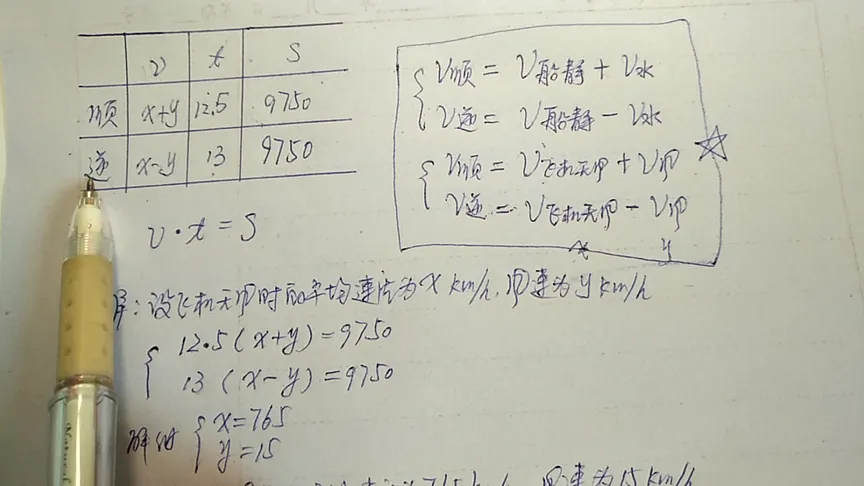 v t S
顺 x+y 12.5 9750
逆 x-y 13 9750
v·t=S
V顺=V船静+V水
V逆=V船静-V水
V顺=V飞机无风+V风
V逆=V飞机无风-V风
x y
解:设飞机无风时的平均速度为x km/h,风速为y km/h
12.5(x+y)=9750
13(x-y)=9750
解得 x=765
y=15
765 风速为15km/h
Natural